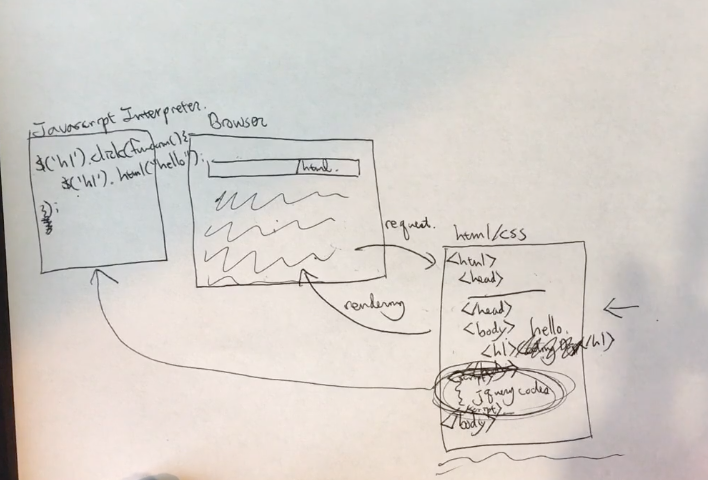 Javascript Interpreter.
$('h1').click(function(){
$('h1').html("hello");
});
Browser
/html.
request.
rendering
html/css
<html>
<head>
</head>
<body>
hello.
<h1> </h1>
<script>
jquery codes
</script>
</body>